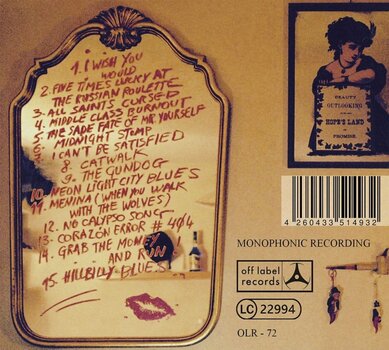 1. I WISH YOU
WOULD
2. FIVE TIMES LUCKY AT
THE RUSSIAN ROULETTE
3. ALL SAINTS CURSED
4. MIDDLE CLASS BURNOUT
5. THE SADE FATE OF MR YOURSELF
6. MIDNIGHT STOMP
7. I CAN'T BE SATISFIED
8. CATWALK
9. THE GUNDOG
10. NEON LIGHT CITY BLUES
11. MEVINA (WHEN YOU WALK
WITH THE WOLVES)
12. NO CALYPSO SONG
13. CORAZÓN ERROR #404
14. GRAB THE MONEY
AND RUN
15. HILLBILLY BLUES
BEAUTY
OUTLOOKING
HOPE'S LAND
OF
PROMISE
4 260433 514932
MONOPHONIC RECORDING
off label
records
LC 22994
OLR - 72